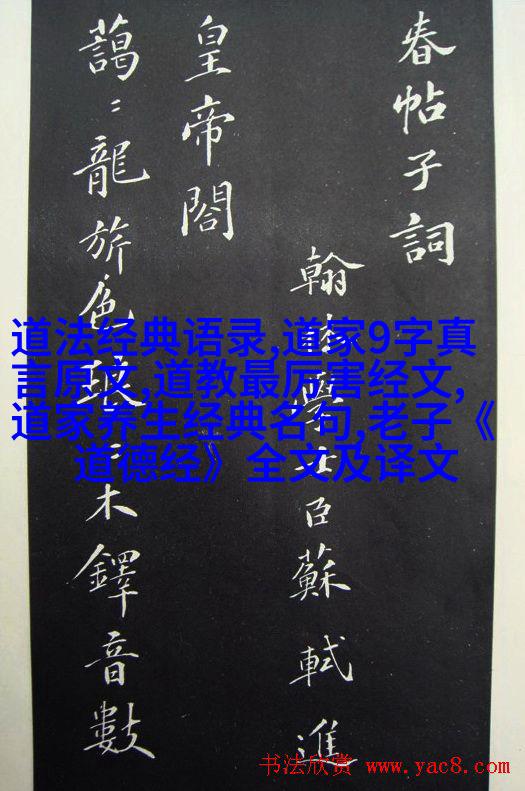 春帖子詞
翰林學士臣蘇軾進
皇帝閤
藹〻龍旂色琅〻木鐸音數
道法经典语录,道家9字真
言原文,道教最厉害经文,
道家养生经典名句,老子《
道德经》全文及译文
书法欣赏 www.yac8.com